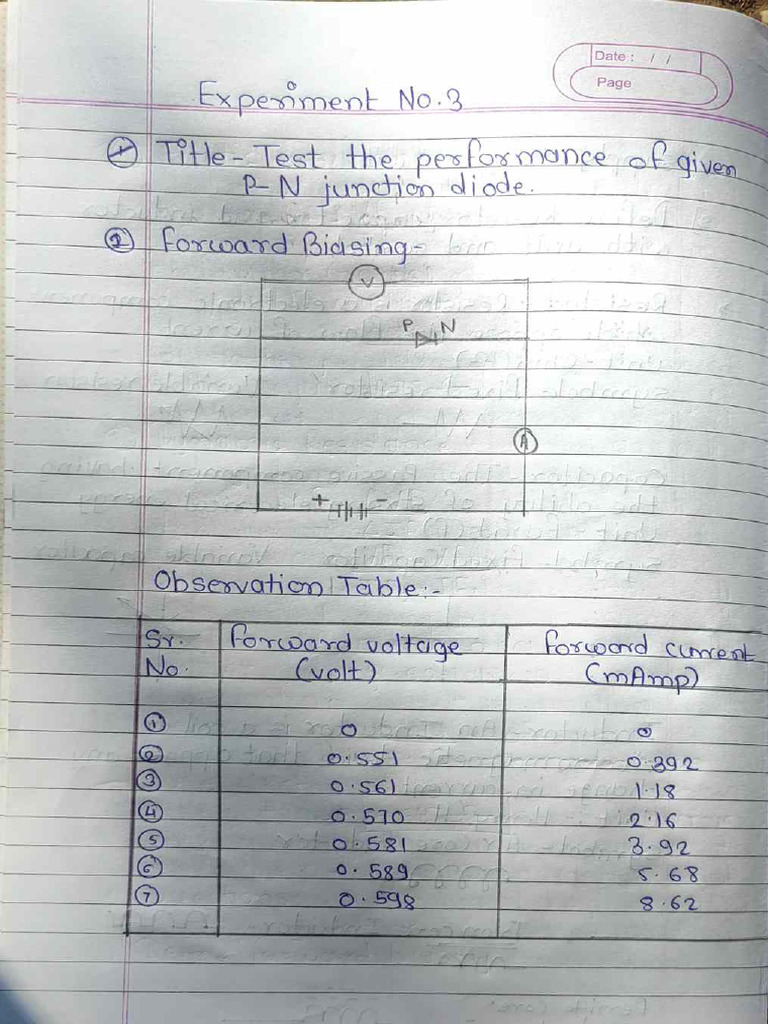 Date : / /
Page
Experiment No.3
① Title - Test the performance of given
P-N junction diode.
② Forward Biasing -
V
P N
A
+ -
Observation Table:-
Sr. No. Forward voltage (volt) Forward current (mAmp)
① 0 0
② 0.551 0.392
③ 0.561 1.18
④ 0.570 2.16
⑤ 0.581 3.92
⑥ 0.589 5.68
⑦ 0.598 8.62